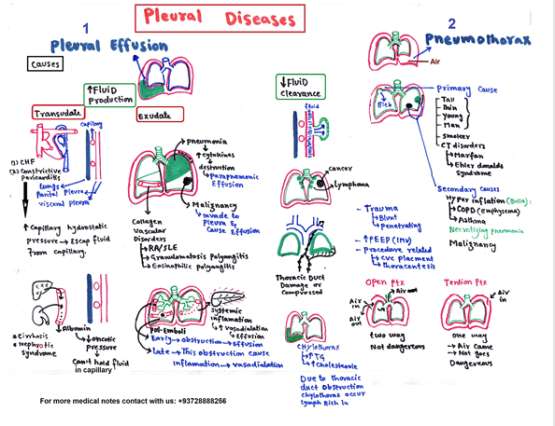 Pleural Diseases
1
Pleural Effusion
Causes
↑Fluid
production
Transudate
Exudate
capillary
(1) CHF
(2) Constrictive
pericarditis
Lungs
Parital Pleura
visceral pleura
↑ Capillary hydrostatic
pressure → Escap fluid
from capillary.
Cirrhosis
nephrotic
syndrome
Albumin
↓oncotic
pressure
Can't hold fluid
in capillary
pneumonia
↑ cytokines
destruction
parapneumonic
Effusion
Malignancy
invade to
pleura &
Cause effusion
Collagen
Vascular
Disorders
RA/SLE
Granulomatosis Polyangitis
Eosinophilic Polyangitis
Systemic
inflammation
↑ vasodialation
Effusion
Pul-Emboli
Early → obstruction → Effusion
late → This obstruction cause
inflammation → vasodialation
↓Fluid
clearance
fluid
cancer
Lymphoma
Thoracic Duct
Damage or
Compressed
Chylothorax
↑TG
↑ cholesterole
Due to thoracic
duct Obstruction
chylothorax occur
lymph Rich in
2
Pneumothorax
Air
Primary Cause
Tall
thin
Young
Man
smoker
CT disorders
Marfan
Ehler danolds
Syndrome
Secondary causes
Hyper inflation
COPD (emphysema)
Asthma
Necrotising pneumonia
Malignancy
Trauma
Blunt
penetrating
↑PEEP (IMV)
procedure related
CVC placement
thoracentesis
Open Ptx
Air out
Air in
Air out
two way
Not dangerous
Tention Ptx
Air
in
one way
→ Air Came
→ Not goes
Dangerous
For more medical notes contact with us: +93728888256